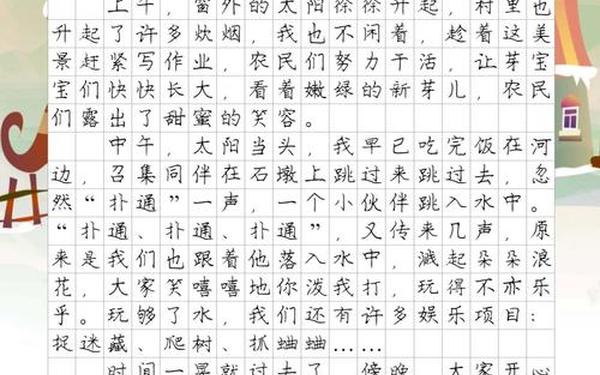 上午，窗外的太阳徐徐升起，村里也
升起了许多炊烟，我也不闲着，趁着这美
景赶紧写作业，农民们努力干活，让芽宝
宝们快快长大，看着嫩绿的新芽儿，农民
们露出了甜蜜的笑容。
中午，太阳当头，我早已吃完饭在河
边，召集同伴在石墩上跳过来跳过去，忽
然“扑通”一声，一个小伙伴跳入水中。
“扑通、扑通、扑通”，又传来几声，原
来是我们也跟着他落入水中，溅起朵朵浪
花，大家笑嘻嘻地你泼我打，玩得不亦乐
乎。玩够了水，我们还有许多娱乐项目：
捉迷藏、爬树、抓蛐蛐……
时间一晃就过去了，傍晚，大家开心